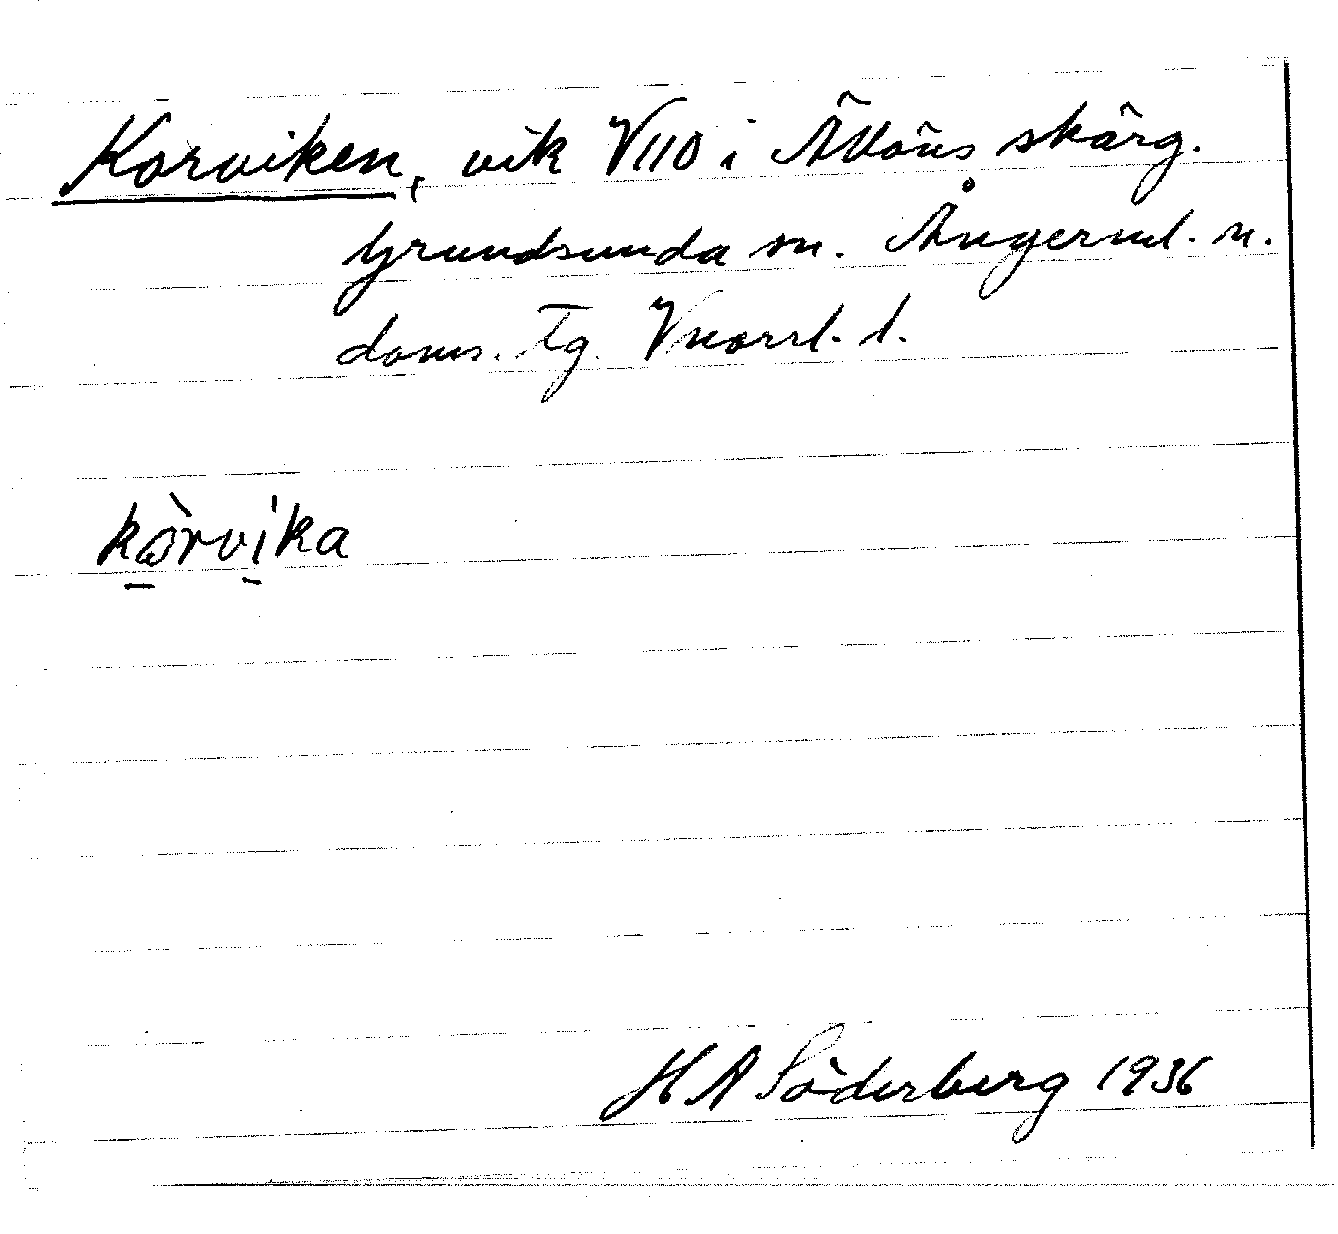 Korviken, vik V110 i Ålöns skärg.
Grundsunda sn. Ångerml. n.
doms. Tg. Vnorrl. l.
kòrvika
H A Söderberg 1936